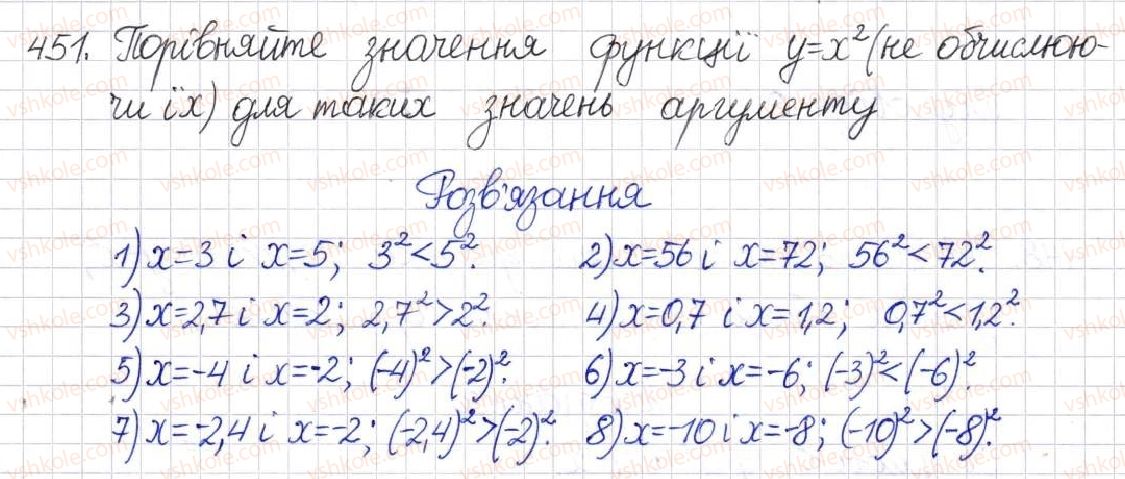 451. Порівняйте значення функції y=x²(не обчислюю-
чи їх) для таких значень аргументу
Розв'язання
1) x=3 і x=5; 3²<5². 2) x=56 і x=72; 56²<72².
3) x=2,7 і x=2; 2,7²>2². 4) x=0,7 і x=1,2; 0,7²<1,2².
5) x=-4 і x=-2; (-4)²>(-2)². 6) x=-3 і x=-6; (-3)²<(-6)².
7) x=-2,4 і x=-2; (-2,4)²>(-2)². 8) x=-10 і x=-8; (-10)²>(-8)².
vshkole.com